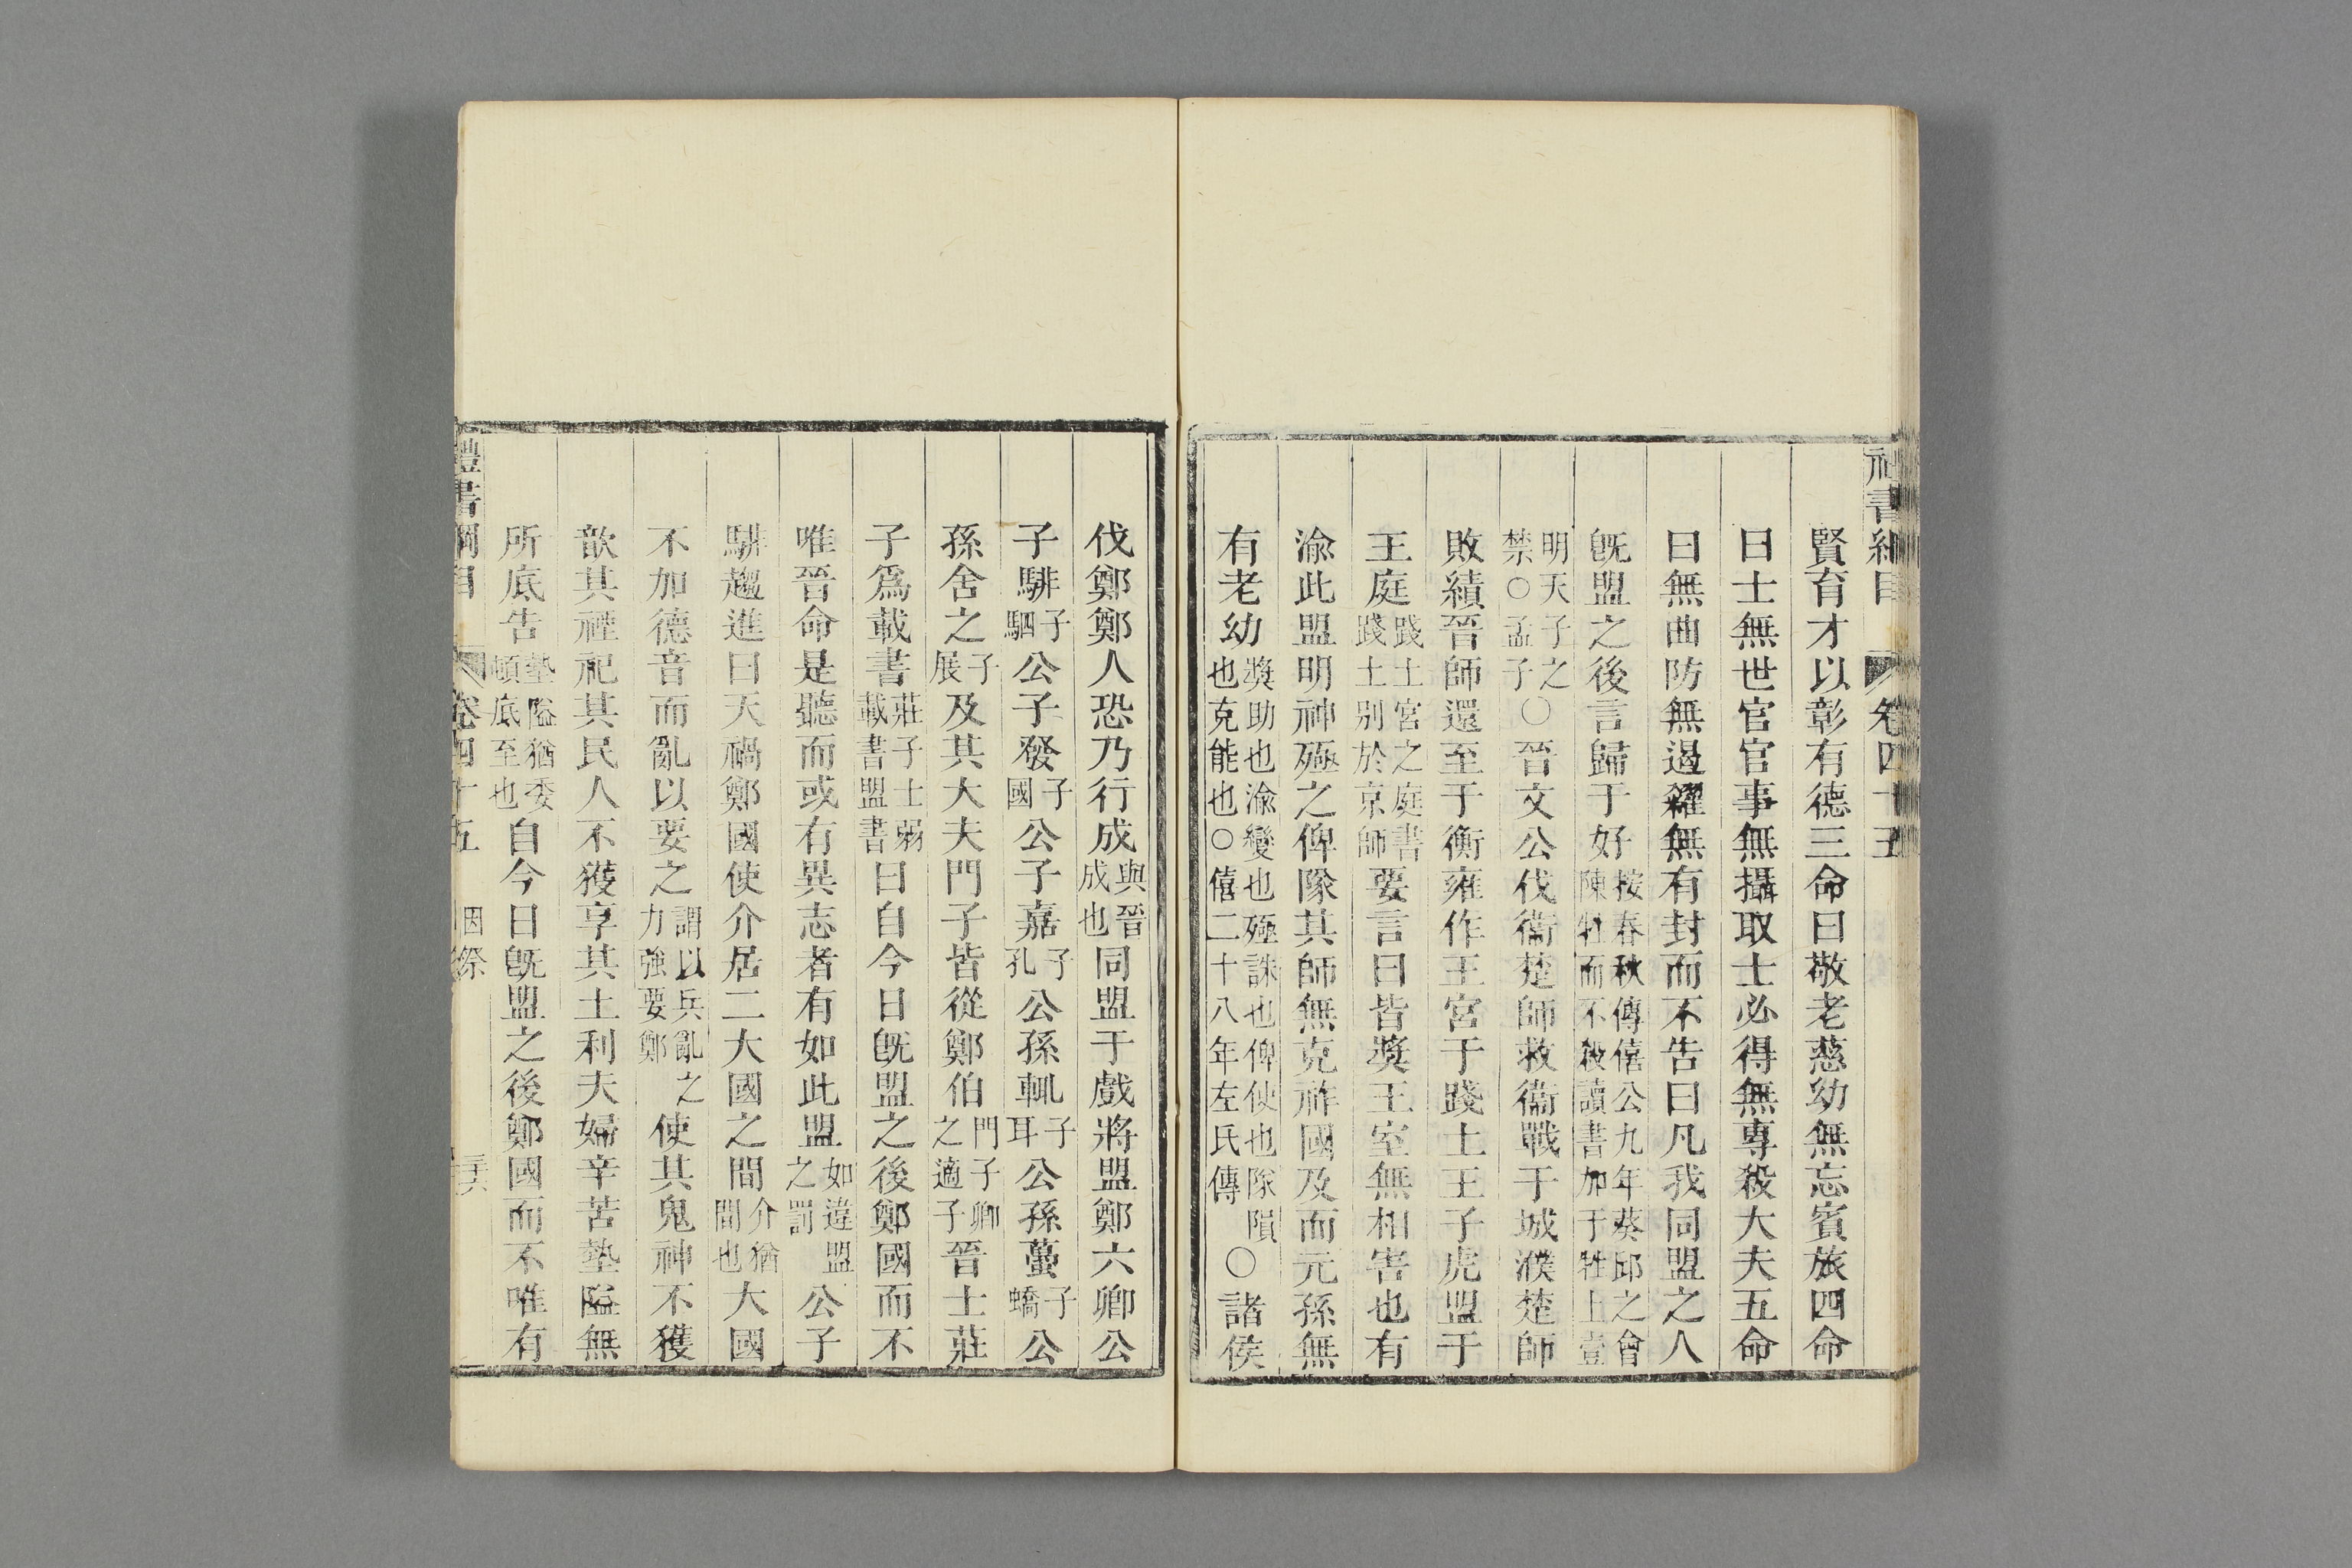 賢育才以彰有德三命曰敬老慈幼無忘賓旅四命
曰士無世官官事無攝取士必得無專殺大夫五命
曰無曲防無遏糴無有封而不告曰凡我同盟之人
既盟之後言歸于好按春秋傳僖公九年葵邱之會陳牲而不殺讀書加于牲上壹
明天子之禁○孟子○晉文公伐衞楚師救衞戰于城濮楚師
敗績晉師還至于衡雍作王宮于踐土王子虎盟于
王庭踐土宮之庭書踐土別於京師要言曰皆獎王室無相害也有
渝此盟明神殛之俾隊其師無克祚國及而元孫無
有老幼獎助也渝變也殛誅也俾使也隊隕也克能也○僖二十八年左氏傳○諸侯
伐鄭鄭人恐乃行成與晉成也同盟于戲將盟鄭六卿公
子騑子駟公子發子國公子嘉子孔公孫輒子耳公孫蠆子蟜公
孫舍之子展及其大夫門子皆從鄭伯門子卿之適子晉士莊
子爲載書莊子士弱載書盟書曰自今日既盟之後鄭國而不
唯晉命是聽而或有異志者有如此盟如違盟之罰公子
騑趨進曰天禍鄭國使介居二大國之間介猶間也大國
不加德音而亂以要之謂以兵亂之力強要鄭使其鬼神不獲
歆其禋祀其民人不獲享其土利夫婦辛苦墊隘無
所底告墊隘猶委頓底至也自今日既盟之後鄭國而不唯有
禮書綱目 卷四十五 因祭 三六